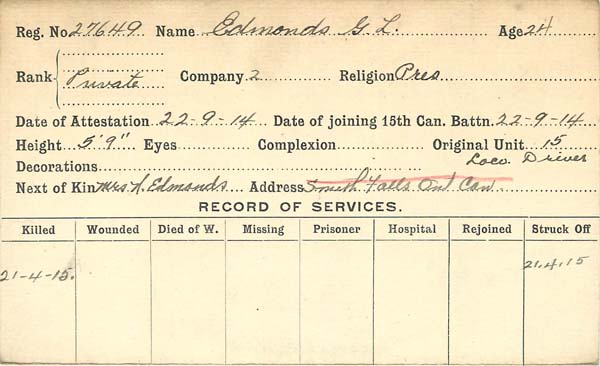 Reg. No. 27649 Name Edmonds G. L. Age 24
Rank Private Company 2 Religion Pres
Date of Attestation 22-9-14 Date of joining 15th Can. Battn. 22-9-14
Height 5'9" Eyes Complexion Original Unit 15
Decorations Loco. Driver
Next of Kin Mrs A. Edmonds Address Smith Falls Ont Can
RECORD OF SERVICES.
Killed Wounded Died of W. Missing Prisoner Hospital Rejoined Struck Off
21-4-15. 21.4.15